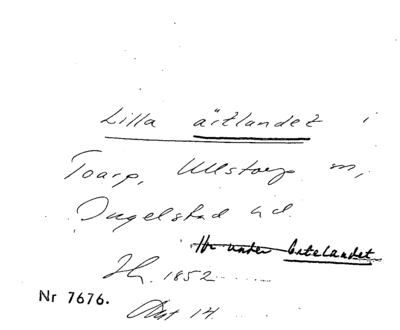 Lilla ärtlandet i
Toarp, Ullstorp sn,
Ingelstad hd.
Hr under Ertelandet
Hr. 1852
Nr 7676.
Akt 14.